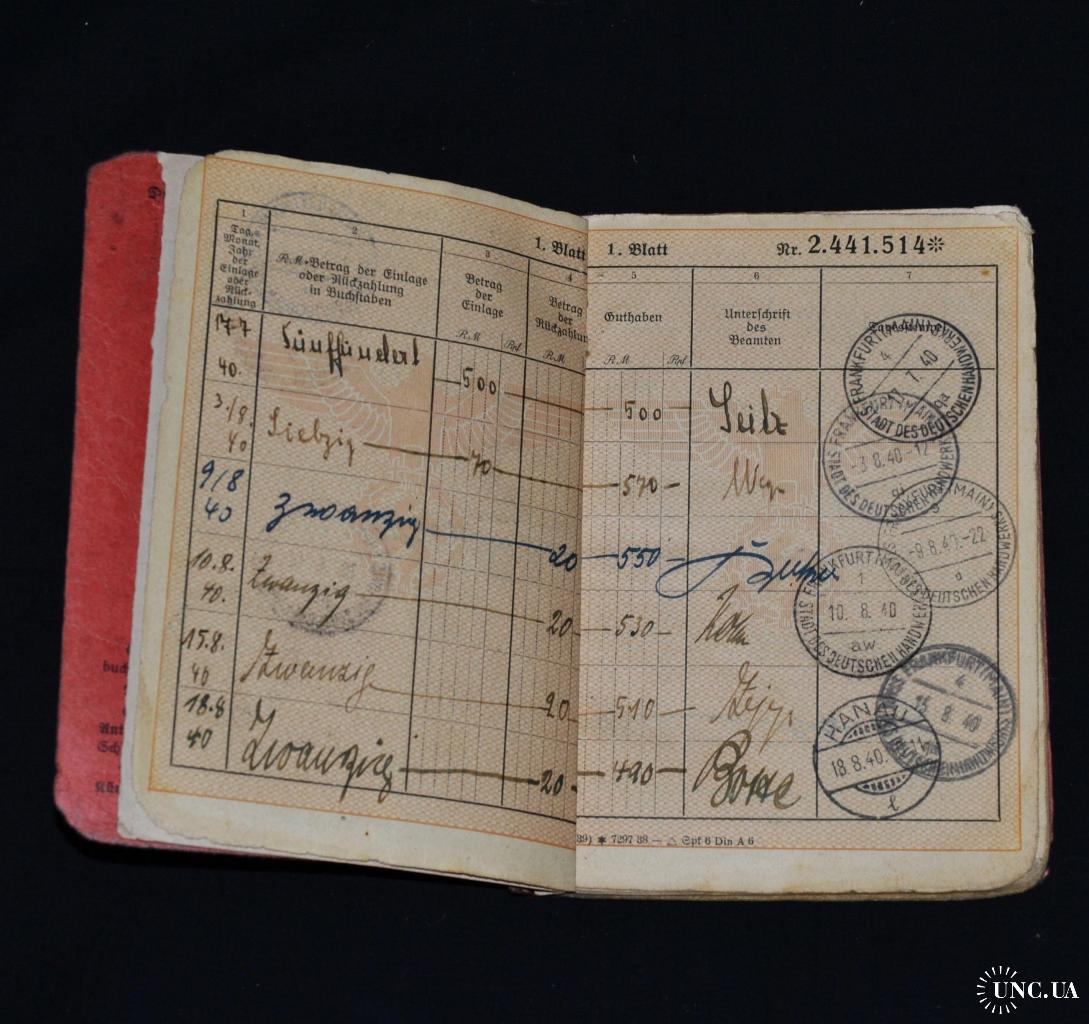 1. Blatt
1
2
3
4
Tag,
Monat,
Jahr
der
Einlage
oder
Rück-
zahlung
R.M-Betrag der Einlage
oder Rückzahlung
in Buchstaben
Betrag
der
Einlage
R.M. Rpf
Betrag
der
Rückzahlun
R.M.
1. Blatt Nr. 2.441.514*
5
6
7
Guthaben
R.M. Rpf
Unterschrift
des
Beamten
Tagesstempel
17.7 40. Fünfhundert 500 500
3./8 40 Siebzig 70 570
9/8 40 Zwanzig 20 550
10.8. 40. Zwanzig 20 530
15.8. 40 Zwanzig 20 510
18.8 40 Zwanzig 20 490
FRANKFURT (MAIN)
STADT DES DEUTSCHEN HANDWERKS
7. 40
FRANKFURT (MAIN)
STADT DES DEUTSCHEN HANDWERKS
-3.8.40.-12
FRANKFURT (MAIN)
STADT DES DEUTSCHEN HANDWERKS
-9.8.40.-22
FRANKFURT (MAIN)
STADT DES DEUTSCHEN HANDWERKS
1
10. 8. 40
aw
FRANKFURT (MAIN)
STADT DES DEUTSCHEN HANDWERKS
4
15. 8. 40
HANAU
18.8.40.
39) * 7297 38 — △ Spf 6 Din A 6
UNC.UA